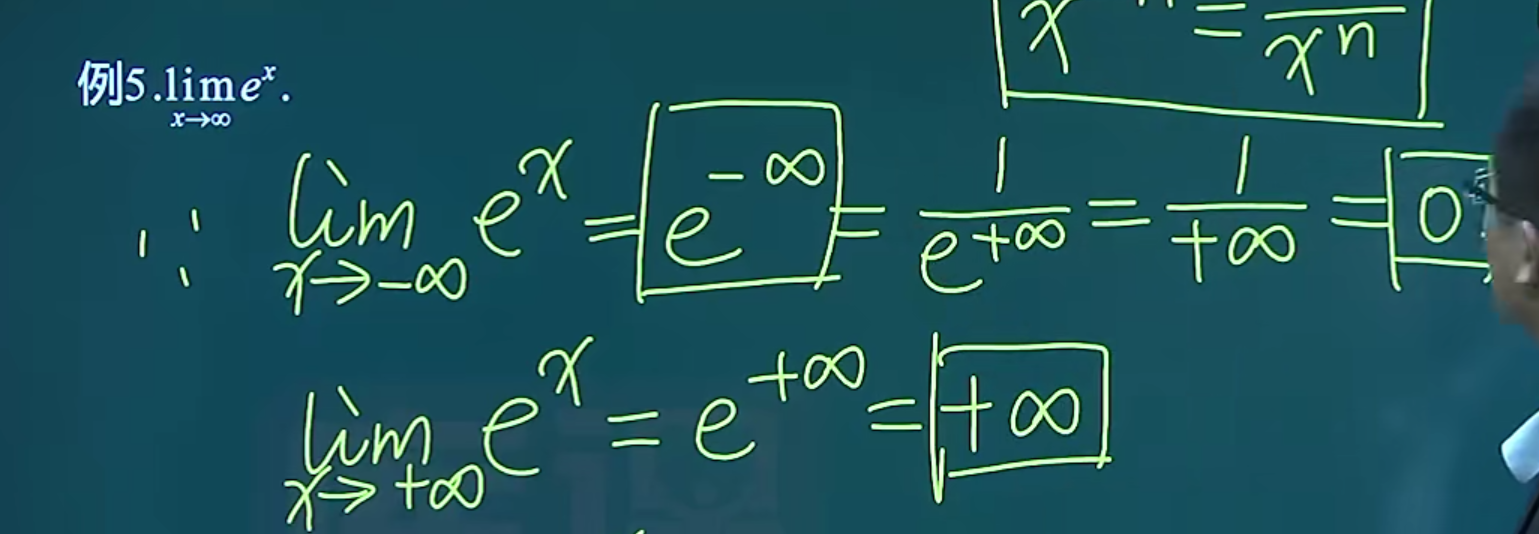 x⁻ⁿ = 1/xⁿ
例5. lim_{x→∞} eˣ.
∵ lim_{x→-∞} eˣ = e^{-∞} = 1/e^{+∞} = 1/+∞ = 0
lim_{x→+∞} eˣ = e^{+∞} = +∞